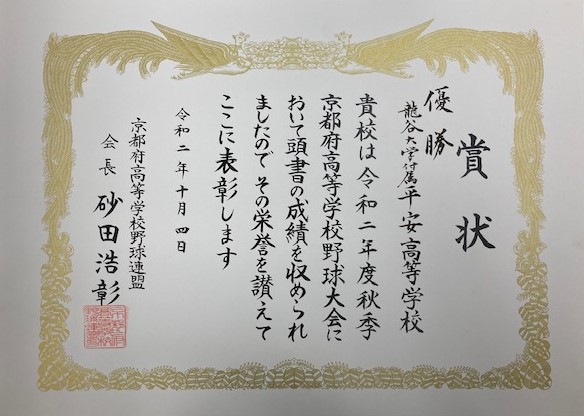 賞状
優勝
龍谷大学付属平安高等学校
貴校は令和二年度秋季
京都府高等学校野球大会に
おいて頭書の成績を収められ
ましたので その栄誉を讃えて
ここに表彰します
令和二年十月四日
京都府高等学校野球連盟
会長 砂田浩彰